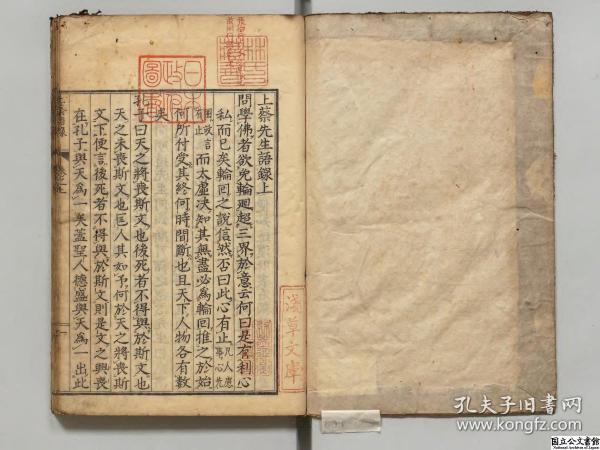 上蔡先生語録上
問學佛者欲免輪廻超三界於意云何曰是有利心
私而已矣輪回之說信然否曰此心有止凡人應事心先
有止而太虛决知其無盡必為輪回推之於始
何所付受其終何時間斷也且天下人物各有數
矣
孔子曰天之將喪斯文也後死者不得與於斯文也
天之未喪斯文也匡人其如予何於天之將喪斯
文下便言後死者不得與於斯文則是文之興喪
在孔子與天為一矣蓋聖人德盛與天為一出此
日本
圖書
淺草文庫
孔夫子旧书网
www.kongfz.com
国立公文書館
National Archives of Japan